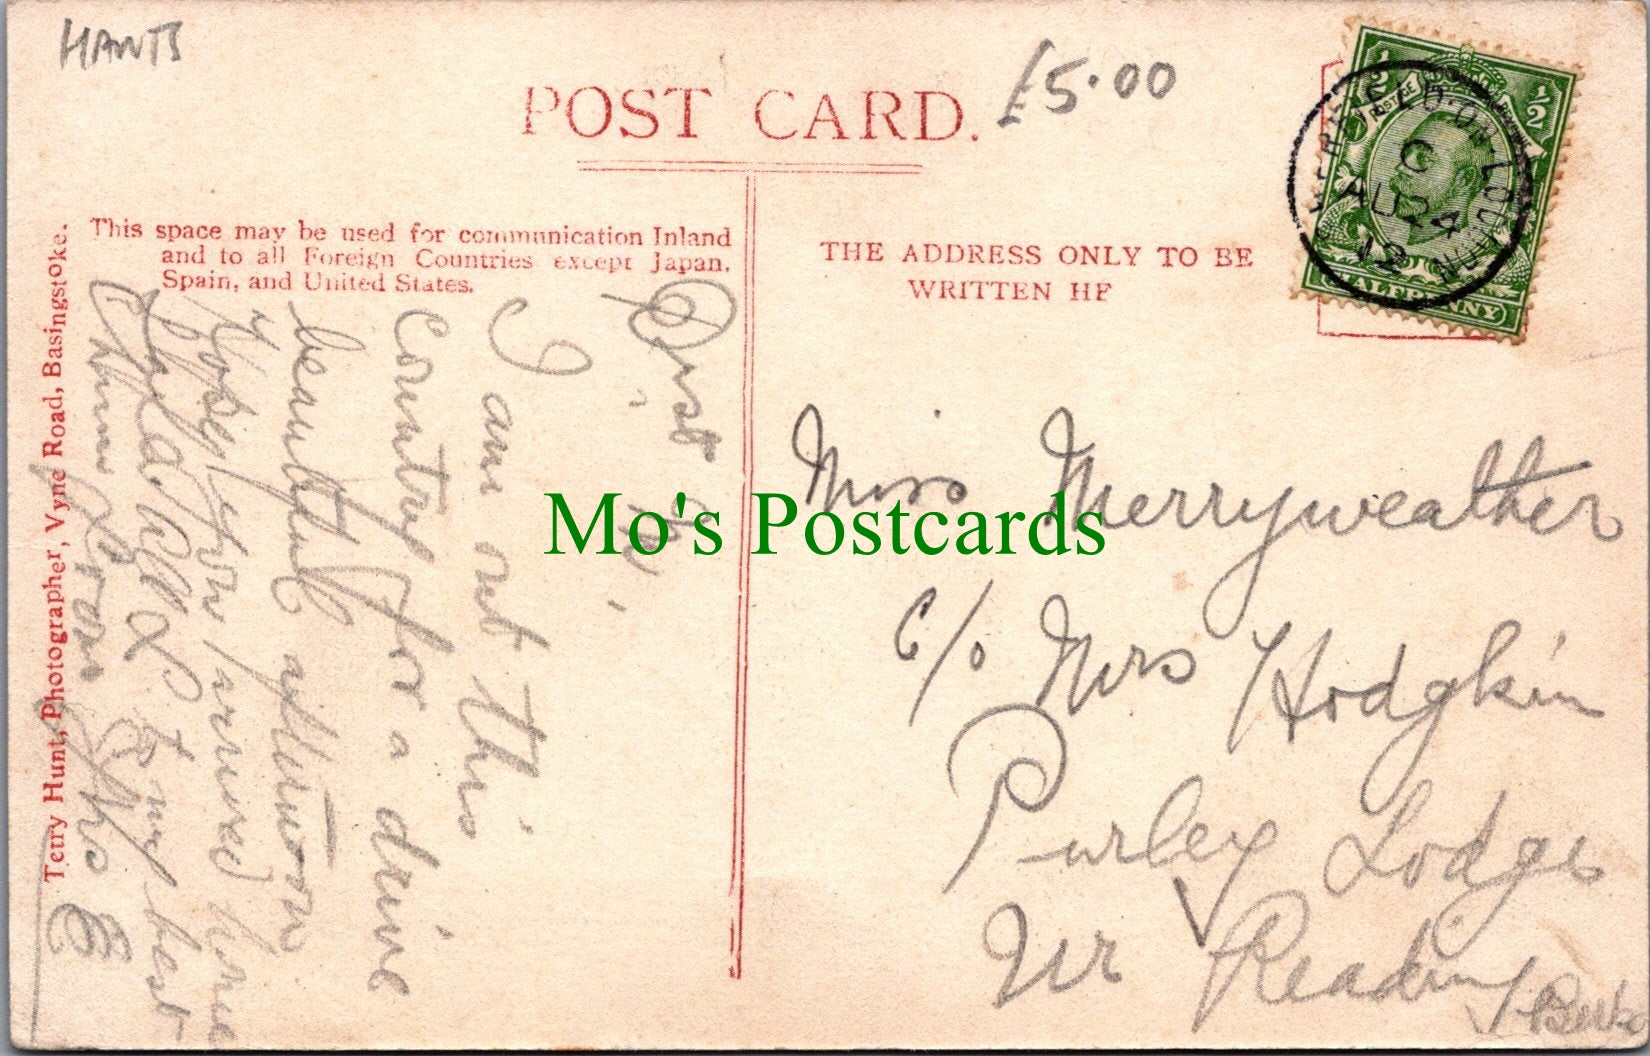 HANTS
POST CARD.
£5.00
This space may be used for communication Inland
and to all Foreign Countries except Japan,
Spain, and United States.
THE ADDRESS ONLY TO BE
WRITTEN HE
Terry Hunt, Photographer, Vyne Road, Basingstoke.
½ ½
POSTAGE
HALFPENNY
SHERFIELD-ON-LOUDDON
C
AU 24
12
I am out this
Country for a drive
beautiful afternoon
Hope you arrived home
to my best
Miss Merryweather
C/o Mrs Hodgkin
Purley Lodge
Nr Reading
Berks
Mo's Postcards